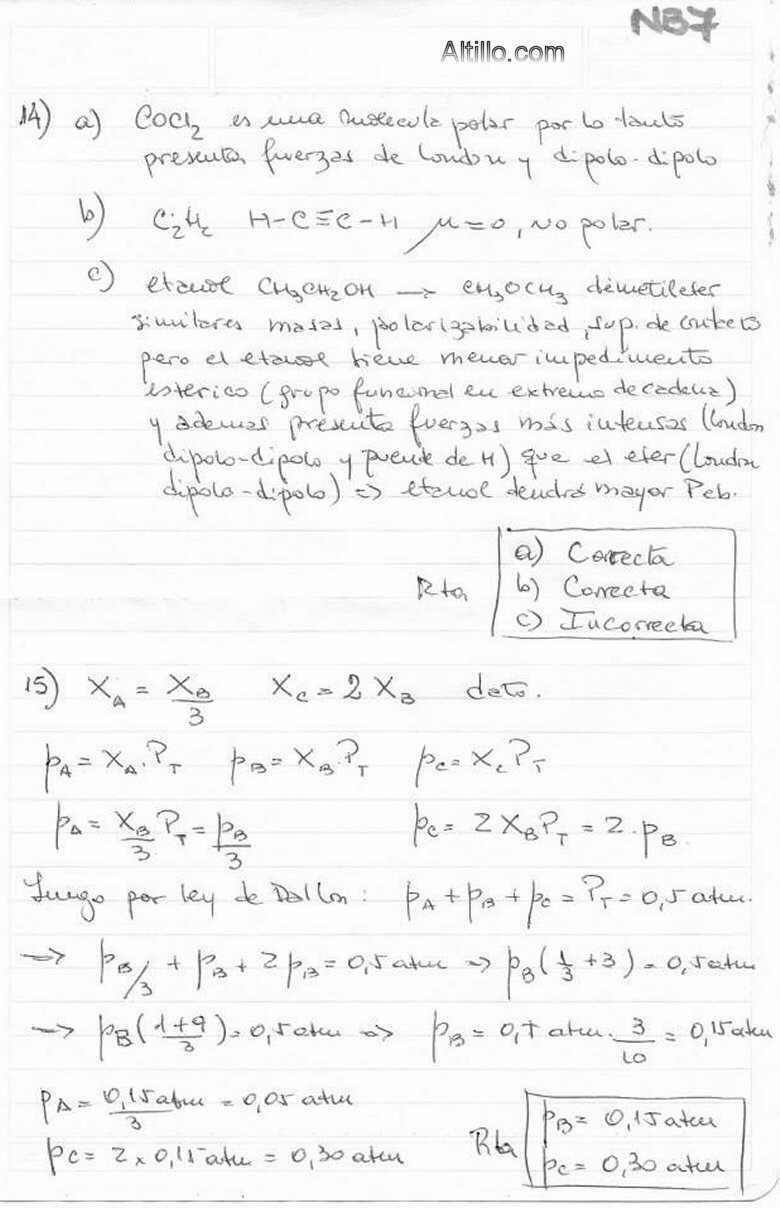 NB7
Altillo.com
14) a) COCl₂ es una molecula polar por lo tanto
presenta fuerzas de London y dipolo-dipolo
b) C₂H₂ H-C≡C-H μ=0, no polar.
c) etanol CH₃CH₂OH → CH₃OCH₃ dimetileter
similares masas, polarizabilidad, sup. de contacto
pero el etanol tiene menor impedimento
esterico (grupo funcional en extremo de cadena)
y ademas presenta fuerzas más intensas (London
dipolo-dipolo y puente de H) que el eter (London
dipolo-dipolo) => etanol tendrá mayor Peb.
Rta
a) Correcta
b) Correcta
c) Incorrecta
15) X_A = X_B/3 X_C = 2 X_B dato.
p_A = X_A . P_T p_B = X_B . P_T p_C = X_C P_T
p_A = X_B/3 P_T = p_B/3 p_C = 2 X_B P_T = 2 . p_B
Luego por ley de Dalton: p_A + p_B + p_C = P_T = 0,5 atm.
=> p_B/3 + p_B + 2 p_B = 0,5 atm => p_B (1/3 + 3) = 0,5 atm
=> p_B (1+9/3) = 0,5 atm => p_B = 0,5 atm . 3/10 = 0,15 atm
p_A = 0,15 atm/3 = 0,05 atm
p_C = 2 x 0,15 atm = 0,30 atm
Rta
p_B = 0,15 atm
p_C = 0,30 atm